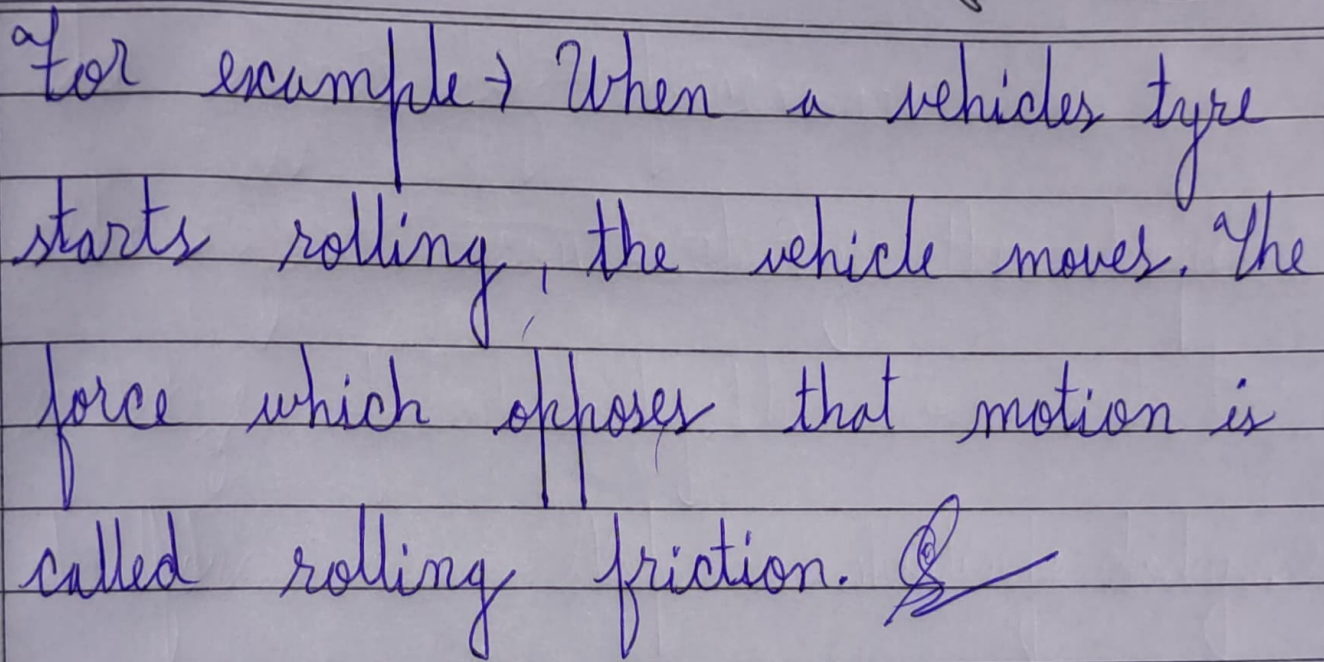 For example → When a vehicles tyre
starts rolling, the vehicle moves. The
force which opposes that motion is
called rolling friction.